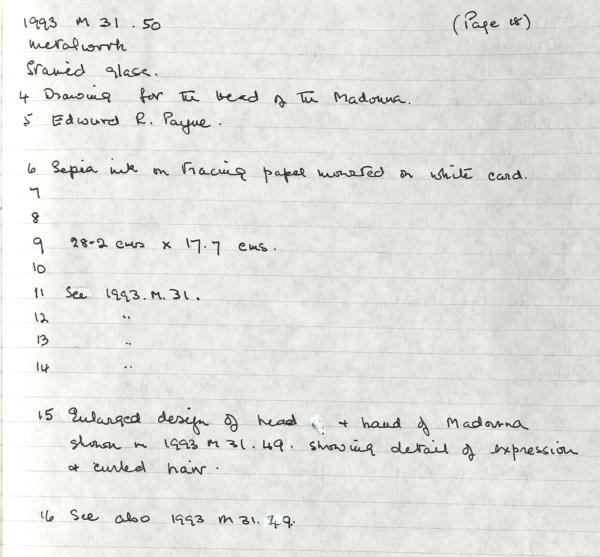 1993 M 31.50 (Page 18)
Metalwork
Stained glass.
4 Drawing for the Head of the Madonna.
5 Edward R. Payne.
6 Sepia ink on tracing paper mounted on white card.
7
8
9 28-2 cms x 17.7 cms.
10
11 See 1993.M.31.
12 "
13 "
14 "
15 Enlarged design of head + hand of Madonna
shown in 1993 M 31.49. showing detail of expression
& curled hair.
16 See also 1993 M 31.49.